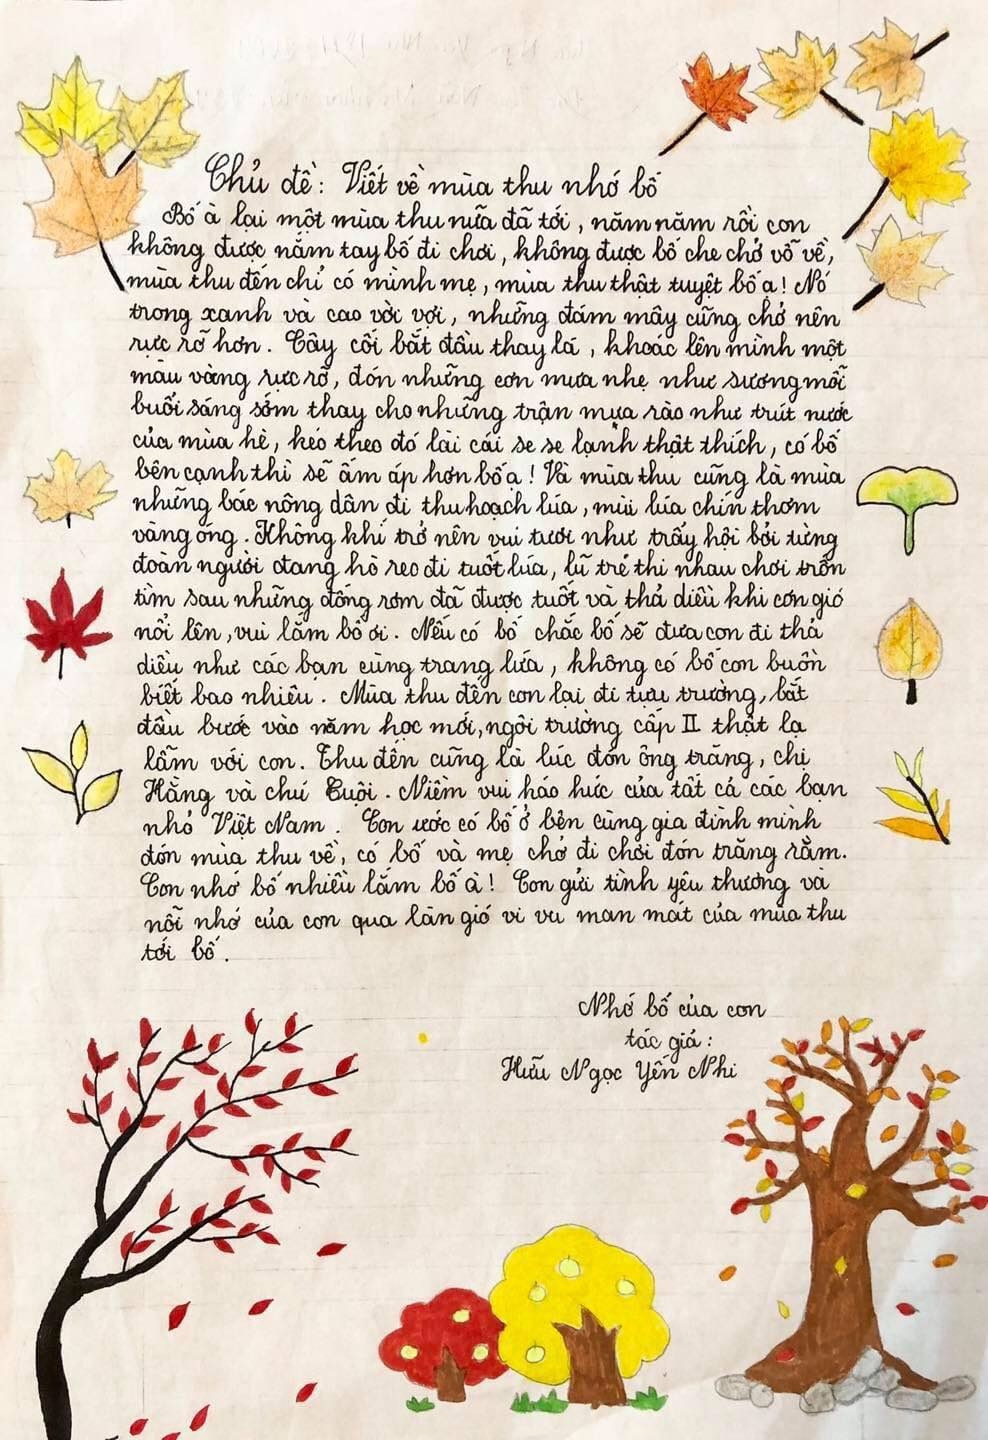 Chủ đề: Viết về mùa thu nhớ bố
Bố à lại một mùa thu nữa đã tới, năm năm rồi con
không được nắm tay bố đi chơi, không được bố che chở vỗ về,
mùa thu đến chỉ có mình mẹ, mùa thu thật tuyệt bố ạ! Nó
trong xanh và cao vời vợi, những đám mây cũng chở nên
rực rỡ hơn. Cây cối bắt đầu thay lá, khoác lên mình một
màu vàng rực rỡ, đón những cơn mưa nhẹ như sương mỗi
buổi sáng sớm thay cho những trận mưa rào như trút nước
của mùa hè, kéo theo đó là cái se se lạnh thật thích, có bố
bên cạnh thì sẽ ấm áp hơn bố ạ! Và mùa thu cũng là mùa
những bác nông dân đi thu hoạch lúa, mùi lúa chín thơm
vàng óng. Không khí trở nên vui tươi như trẩy hội bởi từng
đoàn người đang hò reo đi tuốt lúa, lũ trẻ thi nhau chơi trốn
tìm sau những đống rơm đã được tuốt và thả diều khi cơn gió
nổi lên, vui lắm bố ơi. Nếu có bố chắc bố sẽ đưa con đi thả
diều như các bạn cùng trang lứa, không có bố con buồn
biết bao nhiêu. Mùa thu đến con lại đi tựu trường, bắt
đầu bước vào năm học mới, ngôi trường cấp II thật lạ
lẫm với con. Thu đến cũng là lúc đón ông trăng, chị
Hằng và chú Cuội. Niềm vui háo hức của tất cả các bạn
nhỏ Việt Nam. Con ước có bố ở bên cùng gia đình mình
đón mùa thu về, có bố và mẹ chở đi chơi đón trăng rằm.
Con nhớ bố nhiều lắm bố à! Con gửi tình yêu thương và
nỗi nhớ của con qua làn gió vi vu man mát của mùa thu
tới bố.
Nhớ bố của con
tác giả:
Hữu Ngọc Yến Nhi